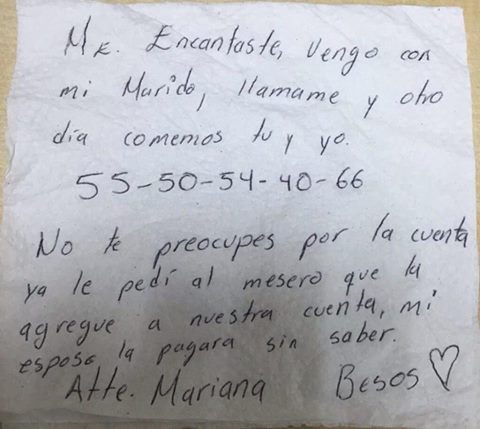 Me. Encantaste, Vengo con
mi Marido, llamame y otro
día comemos tu y yo.
55-50-54-40-66
No te preocupes por la cuenta
ya le pedí al mesero que la
agregue a nuestra cuenta, mi
esposo la pagara sin saber.
Atte. Mariana Besos ♡